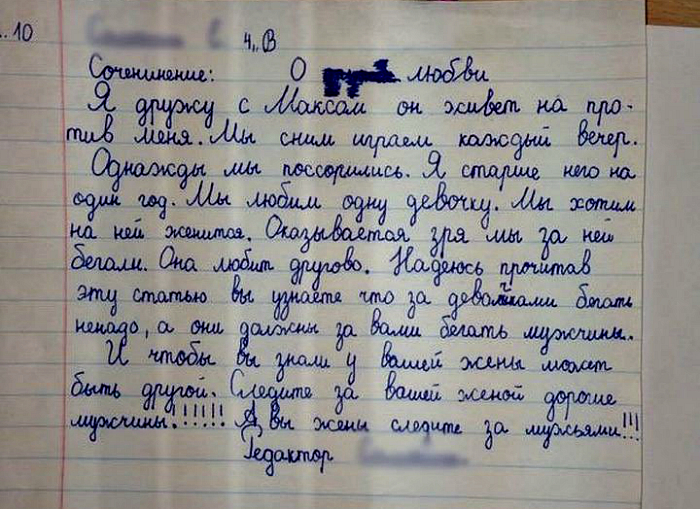 . 10
4 „В
Соченинение: О любви
Я дружу с Максом он живет на про-
тив меня. Мы сним играем каждый вечер.
Однажды мы поссорились. Я старше него на
один год. Мы любим одну девочку. Мы хотим
на ней женится. Оказывается зря мы за ней
бегали. Она любит другово. Надеюсь прочитав
эту статью вы узнаете что за девочками бегать
ненадо, а они должны за вами бегать мужчины.
И чтобы вы знали у вашей жены может
быть другой. Следите за вашей женой дорогие
мужчины!!!!!! А вы жены следите за мужьями!!!
Редактор